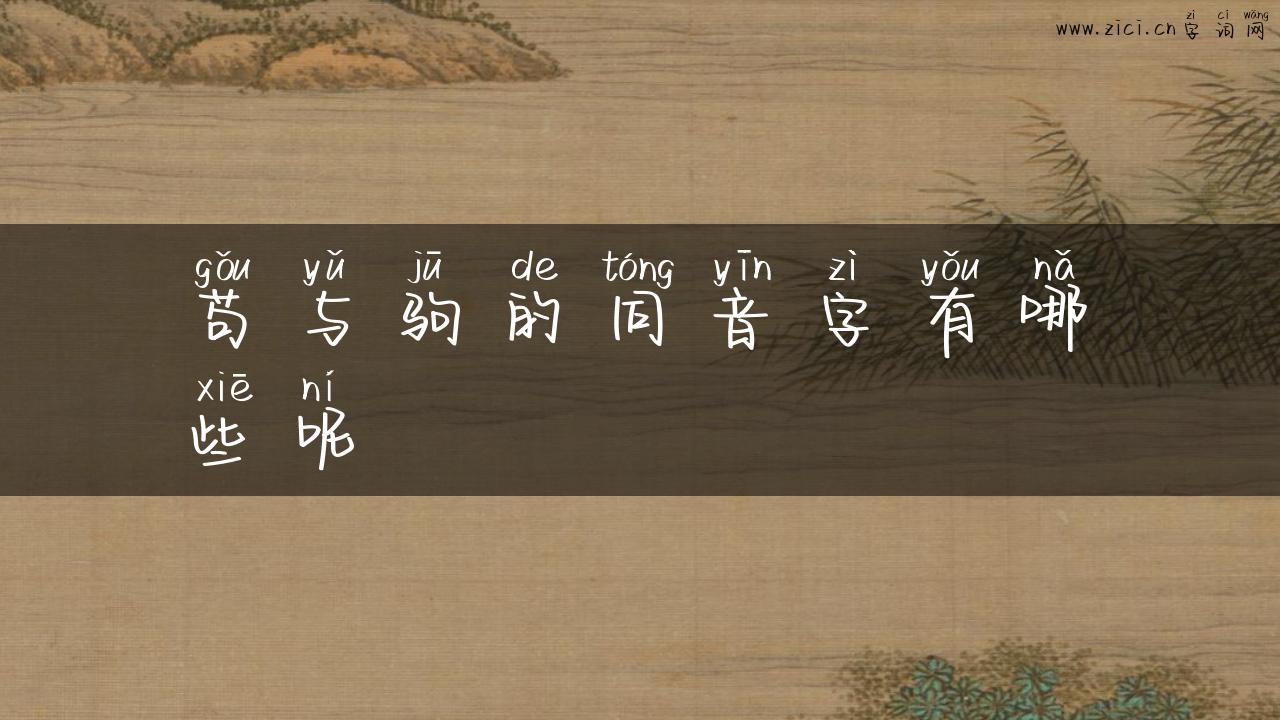 www.zici.cn zì cí wǎng
字词网
gǒu yǔ jū de tóng yīn zì yǒu nǎ
苟与驹的同音字有哪
xiē ní
些呢